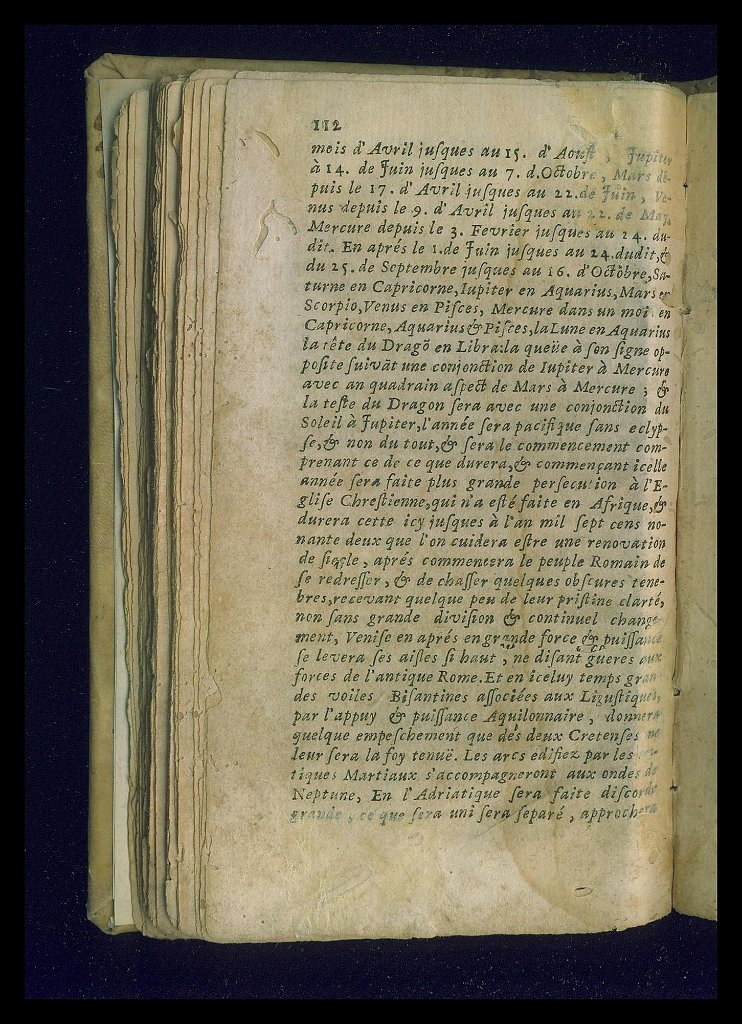 112
mois d'Avril juſques au 15. d'Aouſt, Jupiter
à 14. de Juin juſques au 7. d.Octobre, Mars de-
puis le 17. d'Avril juſques au 22.de Juin, Ve-
nus depuis le 9. d'Avril juſques au 22. de May,
Mercure depuis le 3. Fevrier juſques au 24. du-
dit. En aprés le 1.de Juin juſques au 24.dudit,&
du 25. de Septembre juſques au 16. d'Octobre,Sa-
turne en Capricorne,Iupiter en Aquarius,Mars en
Scorpio,Venus en Piſces, Mercure dans un moi en
Capricorne, Aquarius&Piſces,la Lune en Aquarius
la tête du Dragõ en Libra:la queüe à ſon ſigne op-
poſite ſuivãt une conjonction de Iupiter à Mercure
avec an quadrain aſpect de Mars à Mercure ; &
la teſte du Dragon ſera avec une conjonction du
Soleil à Jupiter,l'année ſera pacifique ſans eclyp-
ſe,& non du tout,& ſera le commencement com-
prenant ce de ce que durera,& commençant icelle
année ſera faite plus grande perſecution à l'E-
gliſe Chreſtienne,qui n'a eſté faite en Afrique,&
durera cette icy juſques à l'an mil ſept cens no-
nante deux que l'on cuidera eſtre une renovation
de ſiecle, aprés commencera le peuple Romain de
ſe redreſſer, & de chaſſer quelques obſcures tene-
bres,recevant quelque peu de leur priſtine clarté,
non ſans grande diviſion & continuel change-
ment, Veniſe en aprés en grande force & puiſſance
ſe levera ſes aiſles ſi haut, ne diſant gueres aux
forces de l'antique Rome.Et en iceluy temps gran-
des voiles Biſantines aſſociées aux Liguſtiques,
par l'appuy & puiſſance Aquilonnaire, donnera
quelque empeſchement que des deux Cretenſes ne
leur ſera la foy tenuë. Les arcs edifiez par les
tiques Martiaux s'accompagneront aux ondes de
Neptune, En l'Adriatique ſera faite diſcorde
grande, ce que ſera uni ſera ſeparé, approchera